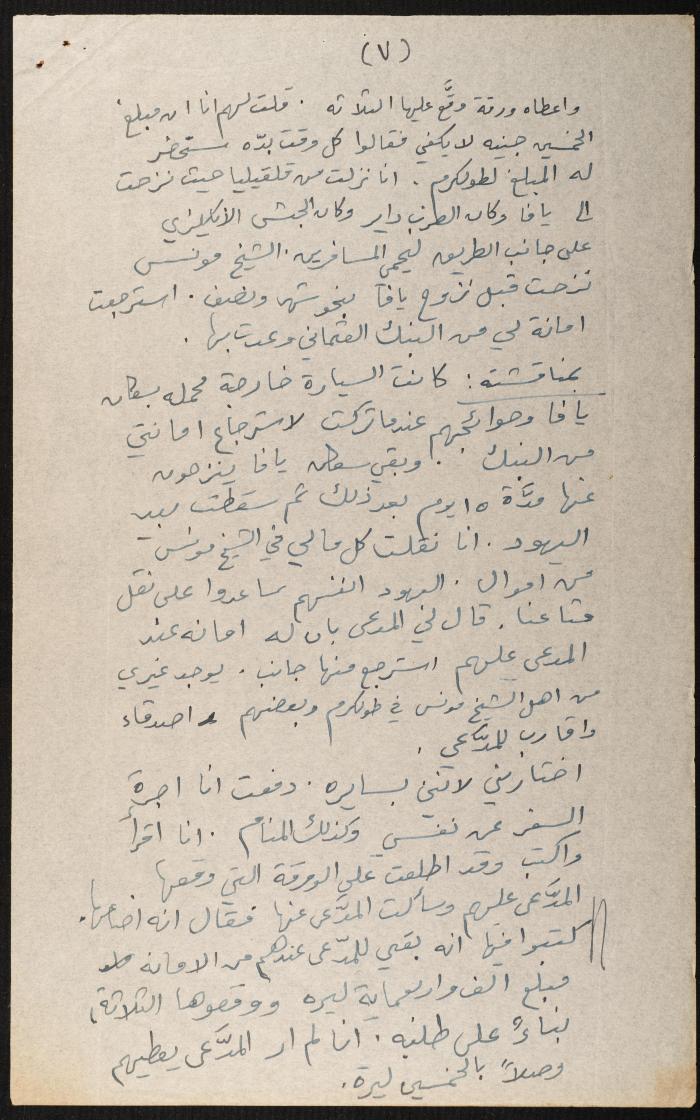 (٧)
واعطاه ورقة وقَّع عليها الثلاثه . قلت لهم انا ان مبلغ
الخمسين جنيه لا يكفي فقالوا كل وقت بدّه ستحضر
له المبلغ لطولكرم . انا نزلت من قلقيليا حيث نزحت
الى يافا وكان الضرب داير وكان الجيش الانكليزي
على جانب الطريق ليحمي المسافرين . الشيخ مونس
نزحت قبل نزوح يافا بنحو شهر ونصف . استرجعت
امانة لي من البنك العثماني وعدت بها .
بمناقشته : كانت السيارة خارجة محمله بسكان
يافا وحوائجهم عندما تركت لاسترجاع امانتي
من البنك . وبقي سكان يافا ينزحون
عنها مدَّة ١٥ يوم بعد ذلك ثم سقطت بيد
اليهود . انا نقلت كل مالي في الشيخ مونس
من اموال . اليهود انفسهم ساعدوا على نقل
متاعنا . قال لي المدعى بان له امانه عند
المدعى عليهم استرجع منها جانب . يوجد غيري
من اهل الشيخ مونس في طولكرم وبعضهم اصدقاء
واقارب للمدَّعي .
اختارني لانني بسايره . دفعت انا اجرة
السفر عن نفسي وكذلك المنام . انا اقرأ
واكتب وقد اطلعت على الورقة التي وقعها
المدَّعى عليهم وسألت المدَّعى عنها فقال انه اضاعها .
كتبوا فيها انه بقي للمدَّعى عندهم من الامانه
مبلغ الف واربعماية ليره ووقعوها الثلاثة
بناءً على طلبه . انا لم ار المدَّعى يعطيهم
وصلاً بالخمسين ليرة .